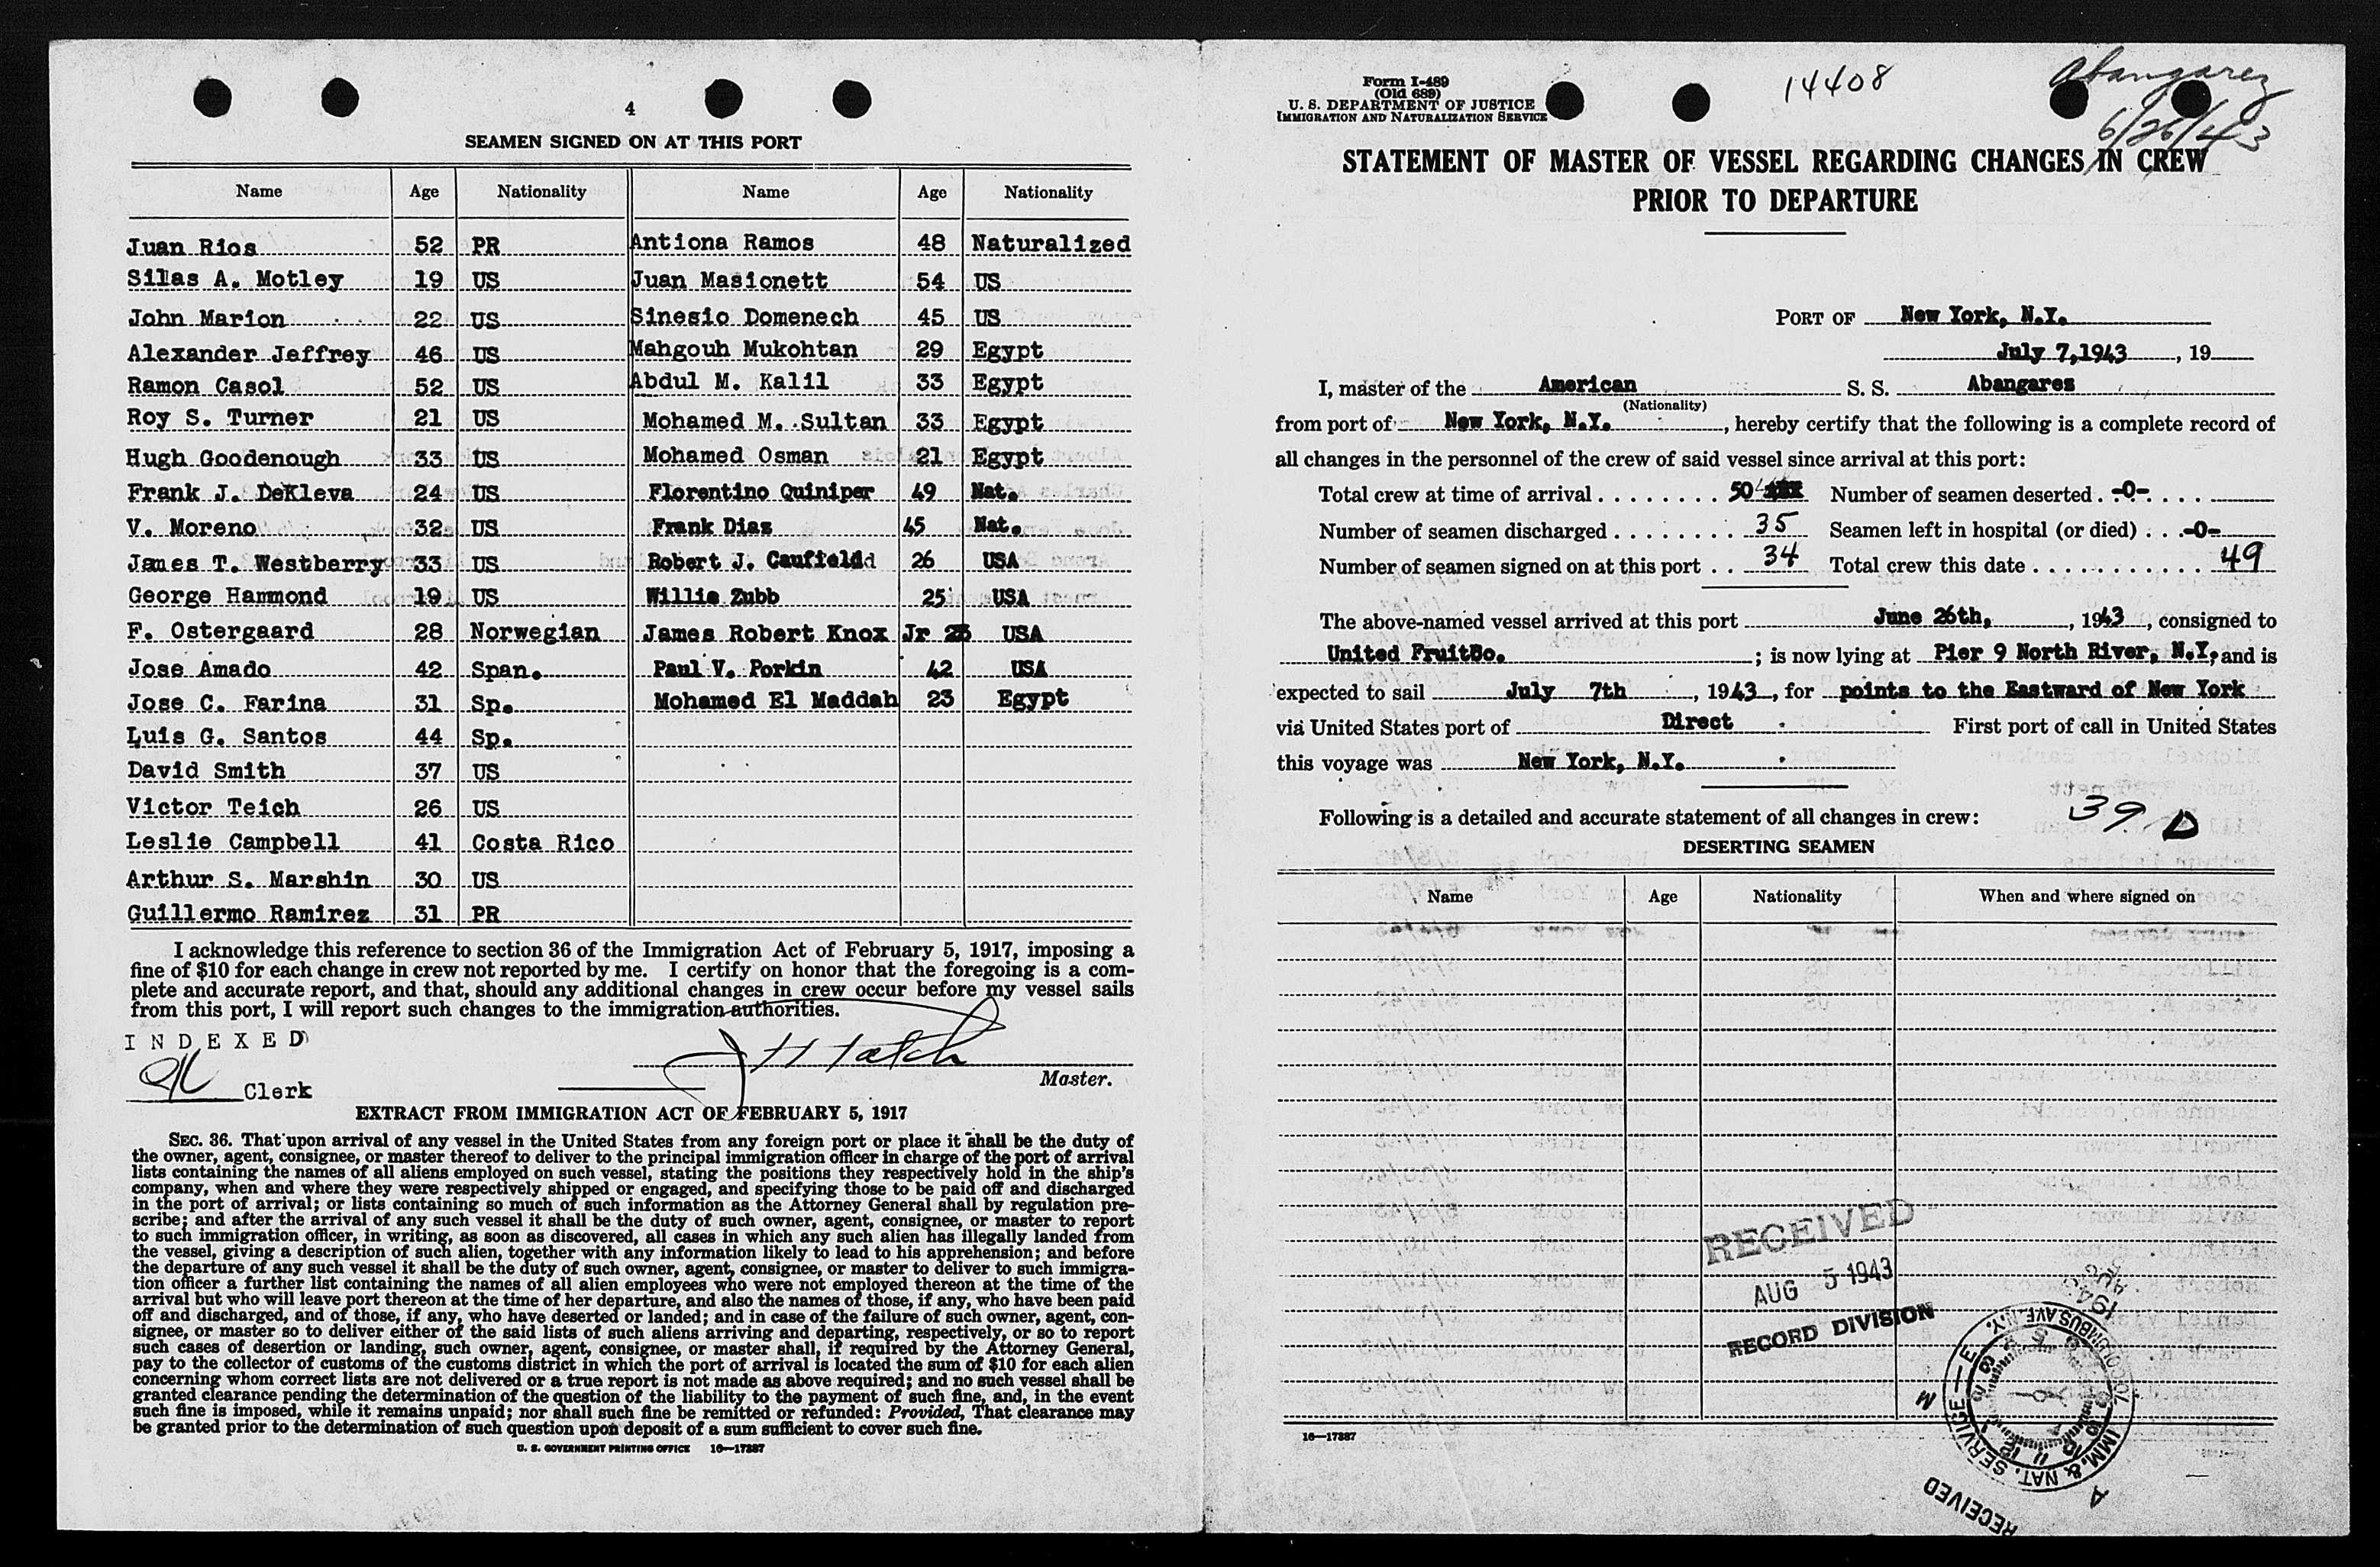 4
SEAMEN SIGNED ON AT THIS PORT
Name Age Nationality Name Age Nationality
Juan Rios 52 PR Antiona Ramos 48 Naturalized
Silas A. Motley 19 US Juan Masionett 54 US
John Marion 22 US Sinesio Domenech 45 US
Alexander Jeffrey 46 US Mahgouh Mukohtan 29 Egypt
Ramon Casol 52 US Abdul M. Kalil 33 Egypt
Roy S. Turner 21 US Mohamed M. Sultan 33 Egypt
Hugh Goodenough 33 US Mohamed Osman 21 Egypt
Frank J. DeKleva 24 US Florentino Quiniper 49 Nat.
V. Moreno 32 US Frank Diaz 45 Nat.
James T. Westberry 33 US Robert J. Cauffeldd 26 USA
George Hammond 19 US Willie Zubb 25 USA
F. Ostergaard 28 Norwegian James Robert Knox Jr USA
Jose Amado 42 Span. Paul V. Porkin 42 USA
Jose C. Farina 31 Sp. Mohamed El Maddah 23 Egypt
Luis G. Santos 44 Sp.
David Smith 37 US
Victor Teich 26 US
Leslie Campbell 41 Costa Rico
Arthur S. Marshin 30 US
Guillermo Ramirez 31 PR
I acknowledge this reference to section 36 of the Immigration Act of February 5, 1917, imposing a
fine of $10 for each change in crew not reported by me. I certify on honor that the foregoing is a com-
plete and accurate report, and that, should any additional changes in crew occur before my vessel sails
from this port, I will report such changes to the immigration authorities.
INDEXED
Clerk
J H Hatch
Master.
EXTRACT FROM IMMIGRATION ACT OF FEBRUARY 5, 1917
SEC. 36. That upon arrival of any vessel in the United States from any foreign port or place it shall be the duty of
the owner, agent, consignee, or master thereof to deliver to the principal immigration officer in charge of the port of arrival
lists containing the names of all aliens employed on such vessel, stating the positions they respectively hold in the ship's
company, when and where they were respectively shipped or engaged, and specifying those to be paid off and discharged
in the port of arrival; or lists containing so much of such information as the Attorney General shall by regulation pre-
scribe; and after the arrival of any such vessel it shall be the duty of such owner, agent, consignee, or master to report
to such immigration officer, in writing, as soon as discovered, all cases in which any such alien has illegally landed from
the vessel, giving a description of such alien, together with any information likely to lead to his apprehension; and before
the departure of any such vessel it shall be the duty of such owner, agent, consignee, or master to deliver to such immigra-
tion officer a further list containing the names of all alien employees who were not employed thereon at the time of the
arrival but who will leave port thereon at the time of her departure, and also the names of those, if any, who have been paid
off and discharged, and of those, if any, who have deserted or landed; and in case of the failure of such owner, agent, con-
signee, or master so to deliver either of the said lists of such aliens arriving and departing, respectively, or so to report
such cases of desertion or landing, such owner, agent, consignee, or master shall, if required by the Attorney General,
pay to the collector of customs of the customs district in which the port of arrival is located the sum of $10 for each alien
concerning whom correct lists are not delivered or a true report is not made as above required; and no such vessel shall be
granted clearance pending the determination of the question of the liability to the payment of such fine, and, in the event
such fine is imposed, while it remains unpaid; nor shall such fine be remitted or refunded: Provided, That clearance may
be granted prior to the determination of such question upon deposit of a sum sufficient to cover such fine.
U. S. GOVERNMENT PRINTING OFFICE 16—17387
Form I-489
(Old 689)
U. S. DEPARTMENT OF JUSTICE
IMMIGRATION AND NATURALIZATION SERVICE
14408
Abangarez
6/26/43
STATEMENT OF MASTER OF VESSEL REGARDING CHANGES IN CREW
PRIOR TO DEPARTURE
PORT OF New York, N.Y.
July 7,1943, 19
I, master of the American S. S. Abangarez
(Nationality)
from port of New York, N.Y., hereby certify that the following is a complete record of
all changes in the personnel of the crew of said vessel since arrival at this port:
Total crew at time of arrival . . . . . . . . 50 Number of seamen deserted . -0- . . . .
Number of seamen discharged . . . . . . . . 35 Seamen left in hospital (or died) . . . -0-
Number of seamen signed on at this port . . 34 Total crew this date . . . . . . . . . . . 49
The above-named vessel arrived at this port June 26th, , 1943, consigned to
United FruitCo. ; is now lying at Pier 9 North River, N.Y, and is
expected to sail July 7th , 1943, for points to the Eastward of New York
via United States port of Direct First port of call in United States
this voyage was New York, N.Y.
Following is a detailed and accurate statement of all changes in crew: 39 D
DESERTING SEAMEN
Name Age Nationality When and where signed on
RECEIVED
AUG 5 1943
RECORD DIVISION
16—17387
IMM. & NAT. SERVICE
COLUMBUS AVE. N.Y.
RECEIVED